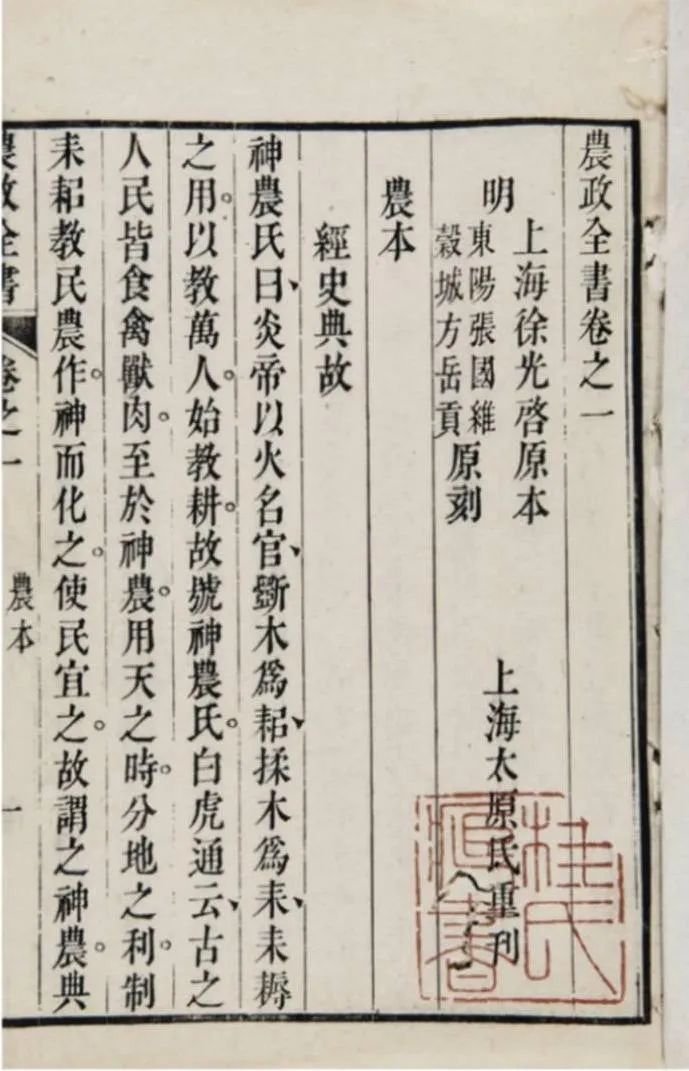 農政全書卷之一
上海徐光啓原本
明
東陽張國維
穀城方岳貢
原刻
上海太原氏重刊
農本
經史典故
神農氏曰、炎帝以火名官、斲木爲耜、揉木爲耒、耒耨
之用。以教萬人。始教耕。故號神農氏。白虎通云、古之
人民皆食禽獸肉。至於神農。用天之時。分地之利。制
耒耜教民農作。神而化之。使民宜之。故謂之神農。典
農政全書 卷之一 農本 一